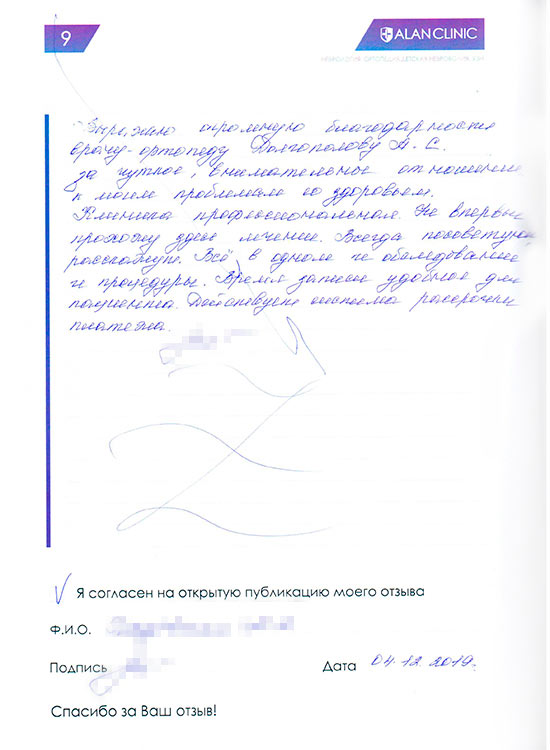 9
ALAN CLINIC
Выражаю огромную благодарность
врачу-ортопеду Долгополову А. С.
за чуткое, внимательное отношение
к моим проблемам со здоровьем.
Клиника профессиональная. Не впервые
прохожу здесь лечение. Всегда посоветуют,
расскажут. Всё в одном и обследование
и процедуры. Время записи удобное для
пациента. Действует система рассрочки
платежа.
Я согласен на открытую публикацию моего отзыва
Ф.И.О.
Подпись Дата 04.12.2019.
Спасибо за Ваш отзыв!